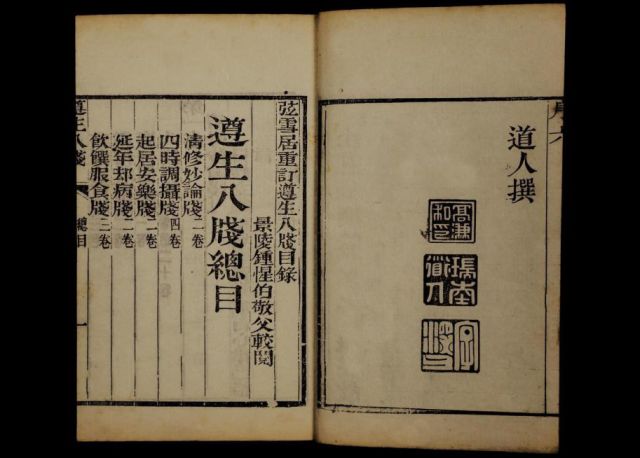 道人撰
瑞南道人
弦雪居重訂遵生八牋目錄
景陵鍾惺伯敬父較閱
遵生八牋總目
清修妙論牋二卷
四時調攝牋四卷
起居安樂牋二卷
延年却病牋二卷
飲饌服食牋三卷
遵生八牋 總目 一